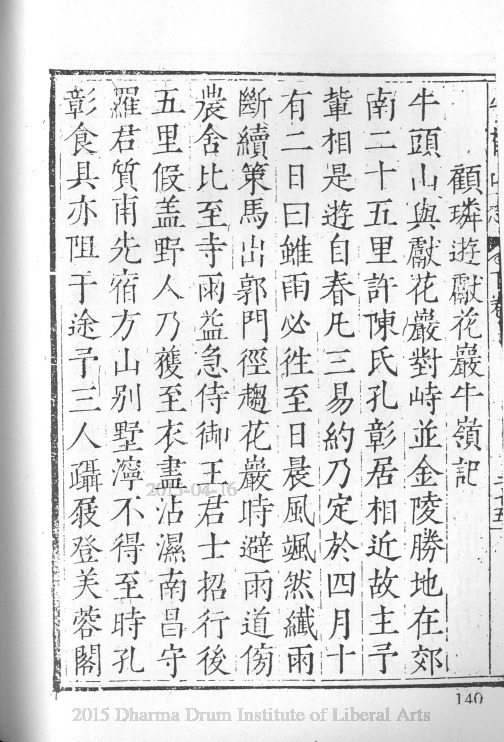 顧璘遊獻花巖牛嶺記
牛頭山與獻花巖對峙並金陵勝地在郊
南二十五里許陳氏孔彰居相近故主予
輩相是遊自春凡三易約乃定於四月十
有二日曰雖雨必徃至日晨風颯然纖雨
斷續策馬出郭門徑趨花巖時避雨道傍
農舍比至寺雨益急侍御王君士招行後
五里假盖野人乃獲至衣盡沾濕南昌守
羅君質甫先宿方山别墅濘不得至時孔
彰食具亦阻于途予三人躡屐登芙蓉閣
140
2015-04-16
2015 Dharma Drum Institute of Liberal Arts